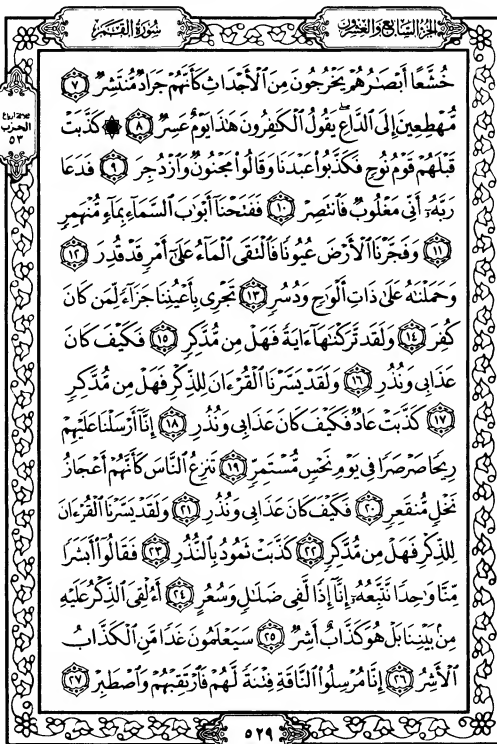 الجزء السابع والعشرون
سورة القمر
خُشَّعًا أَبْصَـٰرُهُمْ يَخْرُجُونَ مِنَ ٱلْأَجْدَاثِ كَأَنَّهُمْ جَرَادٌ مُّنتَشِرٌ ٧
مُّهْطِعِينَ إِلَى ٱلدَّاعِ يَقُولُ ٱلْكَـٰفِرُونَ هَـٰذَا يَوْمٌ عَسِرٌ ٨ ۞ كَذَّبَتْ
قَبْلَهُمْ قَوْمُ نُوحٍ فَكَذَّبُوا۟ عَبْدَنَا وَقَالُوا۟ مَجْنُونٌ وَٱزْدُجِرَ ٩ فَدَعَا
رَبَّهُۥٓ أَنِّى مَغْلُوبٌ فَٱنتَصِرْ ١٠ فَفَتَحْنَآ أَبْوَٰبَ ٱلسَّمَآءِ بِمَآءٍ مُّنْهَمِرٍ
١١ وَفَجَّرْنَا ٱلْأَرْضَ عُيُونًا فَٱلْتَقَى ٱلْمَآءُ عَلَىٰٓ أَمْرٍ قَدْ قُدِرَ ١٢
وَحَمَلْنَـٰهُ عَلَىٰ ذَاتِ أَلْوَٰحٍ وَدُسُرٍ ١٣ تَجْرِى بِأَعْيُنِنَا جَزَآءً لِّمَن كَانَ
كُفِرَ ١٤ وَلَقَد تَّرَكْنَـٰهَآ ءَايَةً فَهَلْ مِن مُّدَّكِرٍ ١٥ فَكَيْفَ كَانَ
عَذَابِى وَنُذُرِ ١٦ وَلَقَدْ يَسَّرْنَا ٱلْقُرْءَانَ لِلذِّكْرِ فَهَلْ مِن مُّدَّكِرٍ
١٧ كَذَّبَتْ عَادٌ فَكَيْفَ كَانَ عَذَابِى وَنُذُرِ ١٨ إِنَّآ أَرْسَلْنَا عَلَيْهِمْ
رِيحًا صَرْصَرًا فِى يَوْمِ نَحْسٍ مُّسْتَمِرٍّ ١٩ تَنزِعُ ٱلنَّاسَ كَأَنَّهُمْ أَعْجَازُ
نَخْلٍ مُّنقَعِرٍ ٢٠ فَكَيْفَ كَانَ عَذَابِى وَنُذُرِ ٢١ وَلَقَدْ يَسَّرْنَا ٱلْقُرْءَانَ
لِلذِّكْرِ فَهَلْ مِن مُّدَّكِرٍ ٢٢ كَذَّبَتْ ثَمُودُ بِٱلنُّذُرِ ٢٣ فَقَالُوٓا۟ أَبَشَرًا
مِّنَّا وَٰحِدًا نَّتَّبِعُهُۥٓ إِنَّآ إِذًا لَّفِى ضَلَـٰلٍ وَسُعُرٍ ٢٤ أَءُلْقِىَ ٱلذِّكْرُ عَلَيْهِ
مِنۢ بَيْنِنَا بَلْ هُوَ كَذَّابٌ أَشِرٌ ٢٥ سَيَعْلَمُونَ غَدًا مَّنِ ٱلْكَذَّابُ
ٱلْأَشِرُ ٢٦ إِنَّا مُرْسِلُوا۟ ٱلنَّاقَةِ فِتْنَةً لَّهُمْ فَٱرْتَقِبْهُمْ وَٱصْطَبِرْ ٢٧
ثلاثة أرباع
الحزب
٥٣
٥٢٩